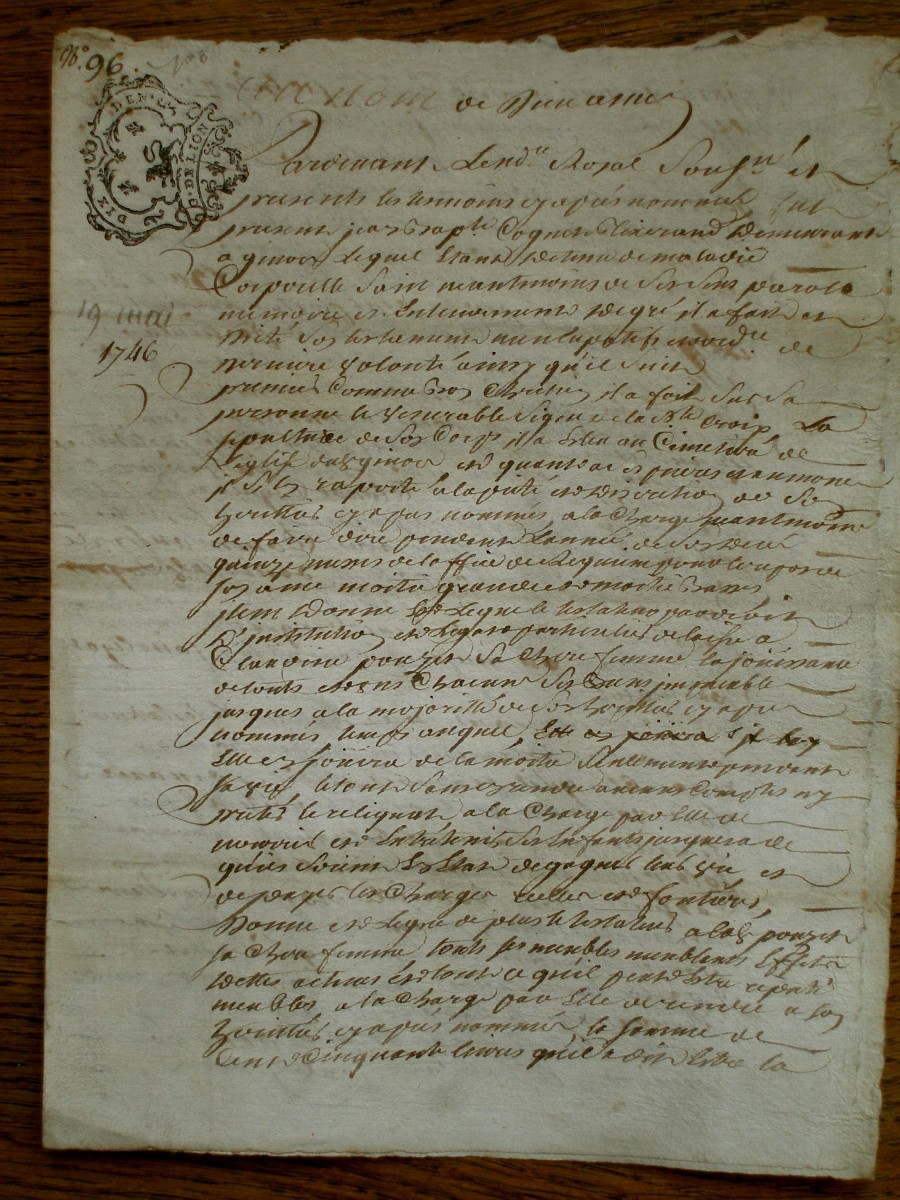 N°. 96
DIX DEN.
G. D. DE LION
Au nom de Dieu amen
Pardevant Le nore Royal Soussné et
presents les temoins cy apres nommés fut
present jean Bapte Cognet Tixerand Demeurant
a ginois Lequel Etant Detenu de maladie
Corporelle Sain neantmoins de ses sens parole
memoire et Entendement De gré il a fait et
Dicté Son testament nuncupatif et ordre de
19 mai
1746
Derniere Volonté ainsy qu'il Suit
premier Comme Bon Chretien il a fait Sur Sa
personne le Venerable Signe de la Ste Croix La
sepulture de son Corps il a Elu au Cimetiere de
L'eglise dud ginois et quant a ses prieres et aumones
il S'en raporte a la pieté et Discretion de Ses
heritiers cy apres nommés a la Charge neantmoins
de faire dire pendant L'année de son Deces
quinze messes de l'office de Requiem pour le repos de
son ame moitié grandes et moitié basses
Item Donne et Legue le testateur par droit
D'institution et Legat particulier delaisse a
Claudine ponzet Sa Chere femme la joüissance
de touts et uns Chacuns Ses biens immeubles
jusques a la majorité de son heritier cy apres
nommé temps auquel
Elle en joüira de la moitié Seulement pendant
Sa vie, le tout Sans rendre aucun Compte ny
preter le reliquat a la Charge par Elle de
nourrir et Entretenir Ses Enfants jusqu'a ce
qu'ils Soient En Etat de gagner leur vie et
de payer les Charges reelles et foncieres,
Donne et Legue de plus le testateur a lad ponzet
sa Chere femme touts ses meubles meublants Effets
Dettes actives et tout ce qu'il peut Etre reputé
meubles a la Charge par Elle de rendre a son
heritier cy apres nommé la Somme de
Cent Cinquante livres qu'il a dit Etre la